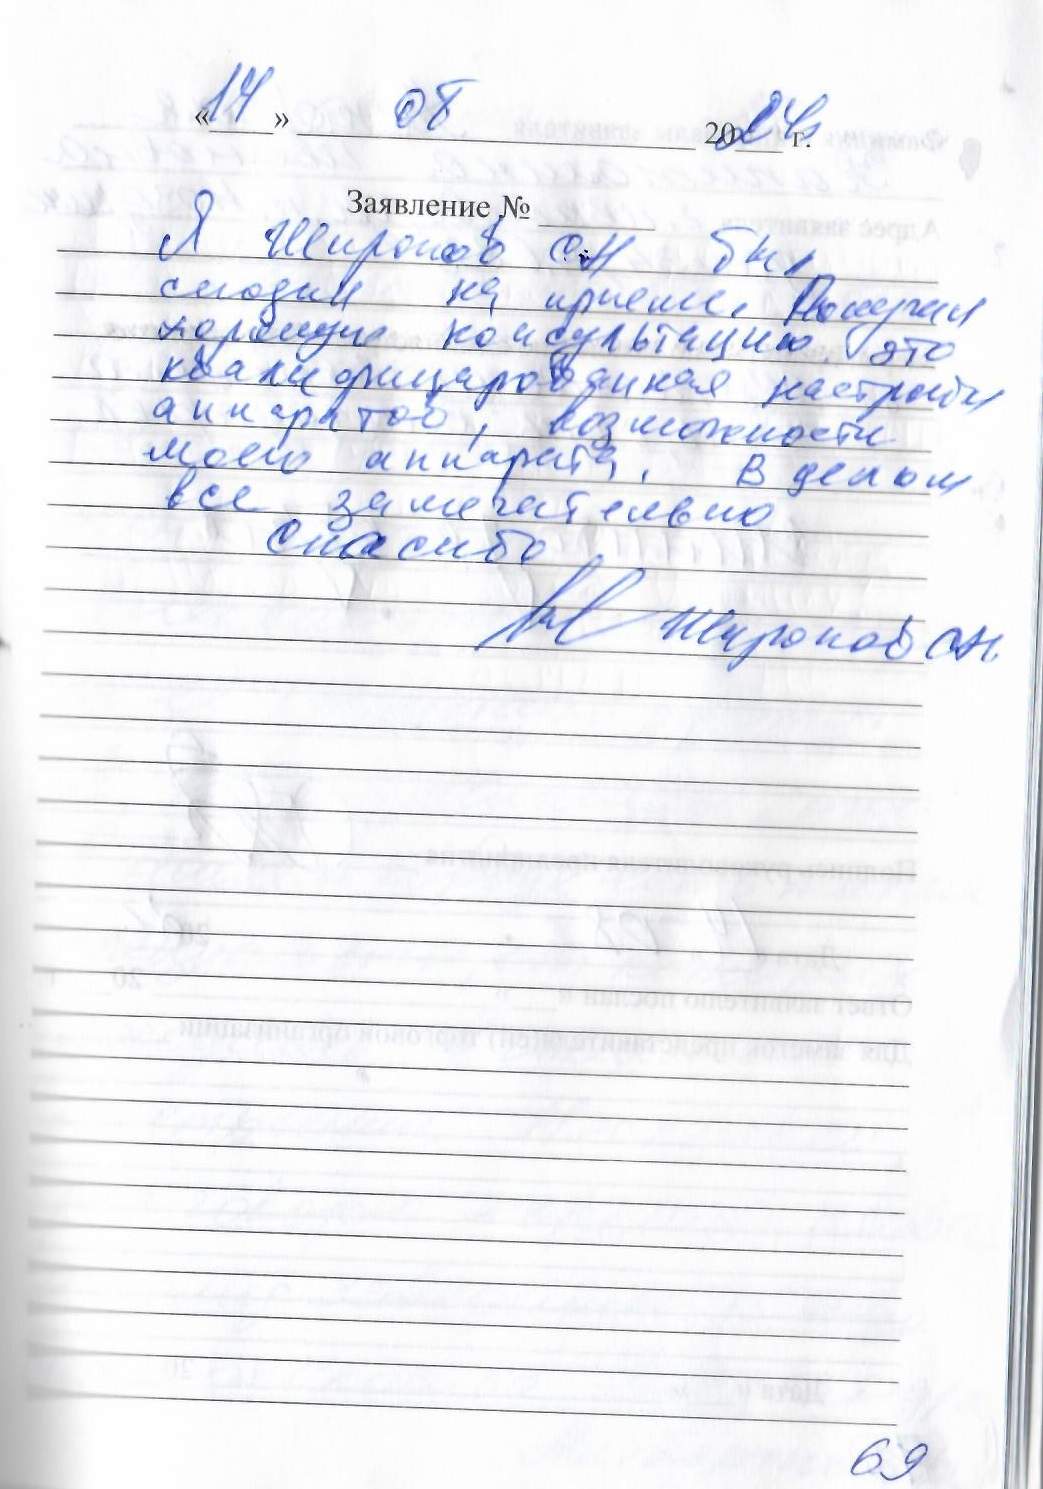 «14» 05 2024 г.
Заявление №
Я Широков С.Н был
сегодня на приеме. Получил
хорошую консультацию это
квалифицированная настройка
аппаратов, возможности
моего аппарата. В целом
все замечательно
Спасибо
Широков С.Н.
69